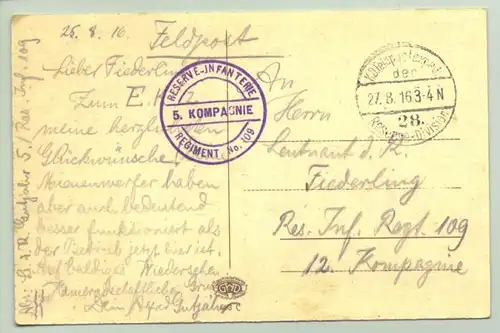 25.8.16
Feldpost
Lieber Fiederling!
Zum E.
meine herzlichen
Glückwünsche!
haben
aber auch bedeutend
besser funktioniert als
der Betrieb jetzt hier ist.
Auf baldiges Wiedersehen
Kamerad
Dein Gutjahr
Gutjahr 5. Res. Inf. 109
RESERVE-INFANTERIE
5. KOMPAGNIE
REGIMENT No. 109
An
Herrn
Leutnant d. R.
Fiederling
Res. Inf. Regt. 109
12. Kompagnie
der
27.8.16 3-4 N
28.
Reserve-Division